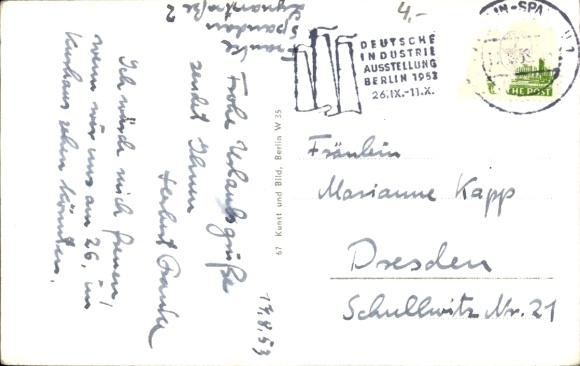 4,-
DEUTSCHE
INDUSTRIE
AUSSTELLUNG
BERLIN 1953
26.IX.-11.X.
IN-SPA
HE POST
Fräulein
Marianne Kapp
Dresden
Schullwitz Nr. 21
67 Kunst und Bild, Berlin W 35
17.8.53
Frohe Urlaubsgrüße
sendet Ihnen
Herbert Franke
Ich würde mich freuen,
wenn wir uns am 26. im
Kurhaus sehen könnten.
Spandau
Lynarstraße 2